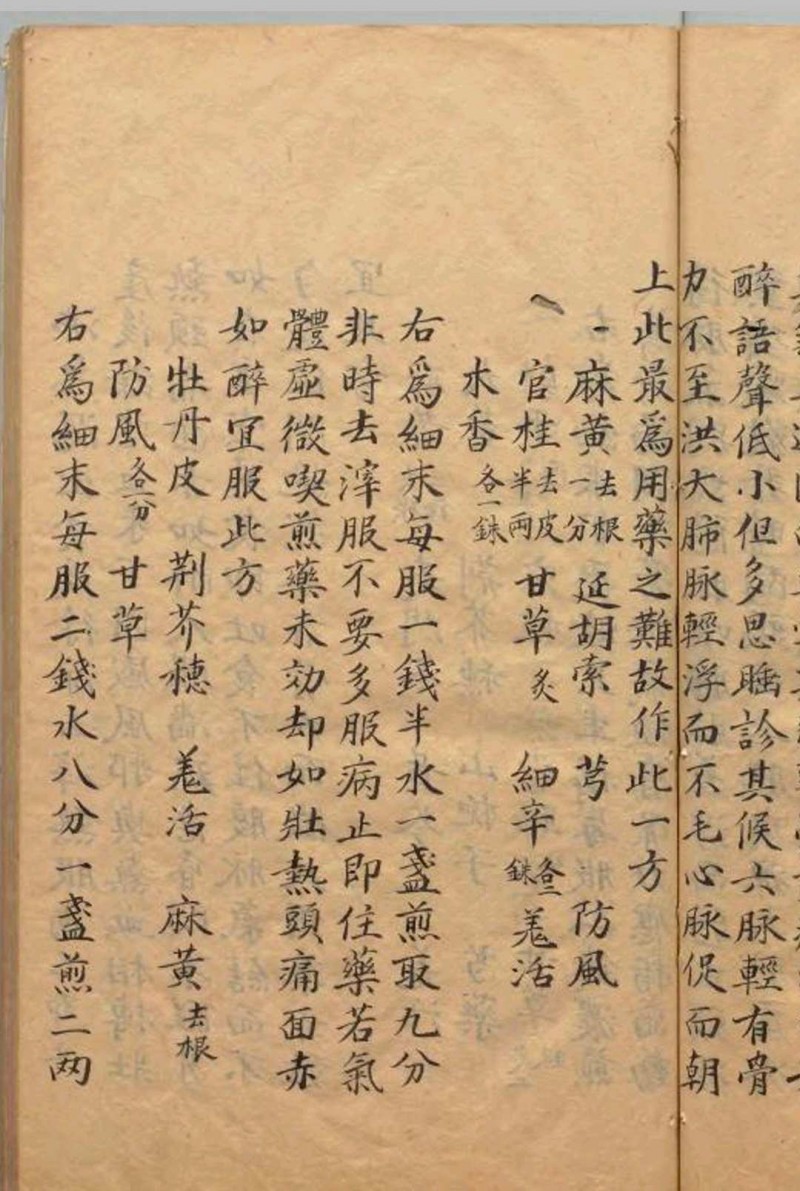 醉語聲低小但多思睡診其候六脉輕有骨
力不至洪大肺脉輕浮而不毛心脉促而朝
上此最爲用藥之難故作此一方
麻黄去根一分 延胡索 芎 防風
官桂去皮半兩 甘草炙 細辛各二銖 羗活
木香各一銖
右爲細末每服一錢半水一盞煎取九分
非時去滓服不要多服病止即住藥若氣
體虛微喫煎藥未効却如壯熱頭痛面赤
如醉冝服此方
牡丹皮 荆芥穗 羗活 麻黄去根
防風各一分 甘草
右爲細末每服二錢水八分一盞煎二两